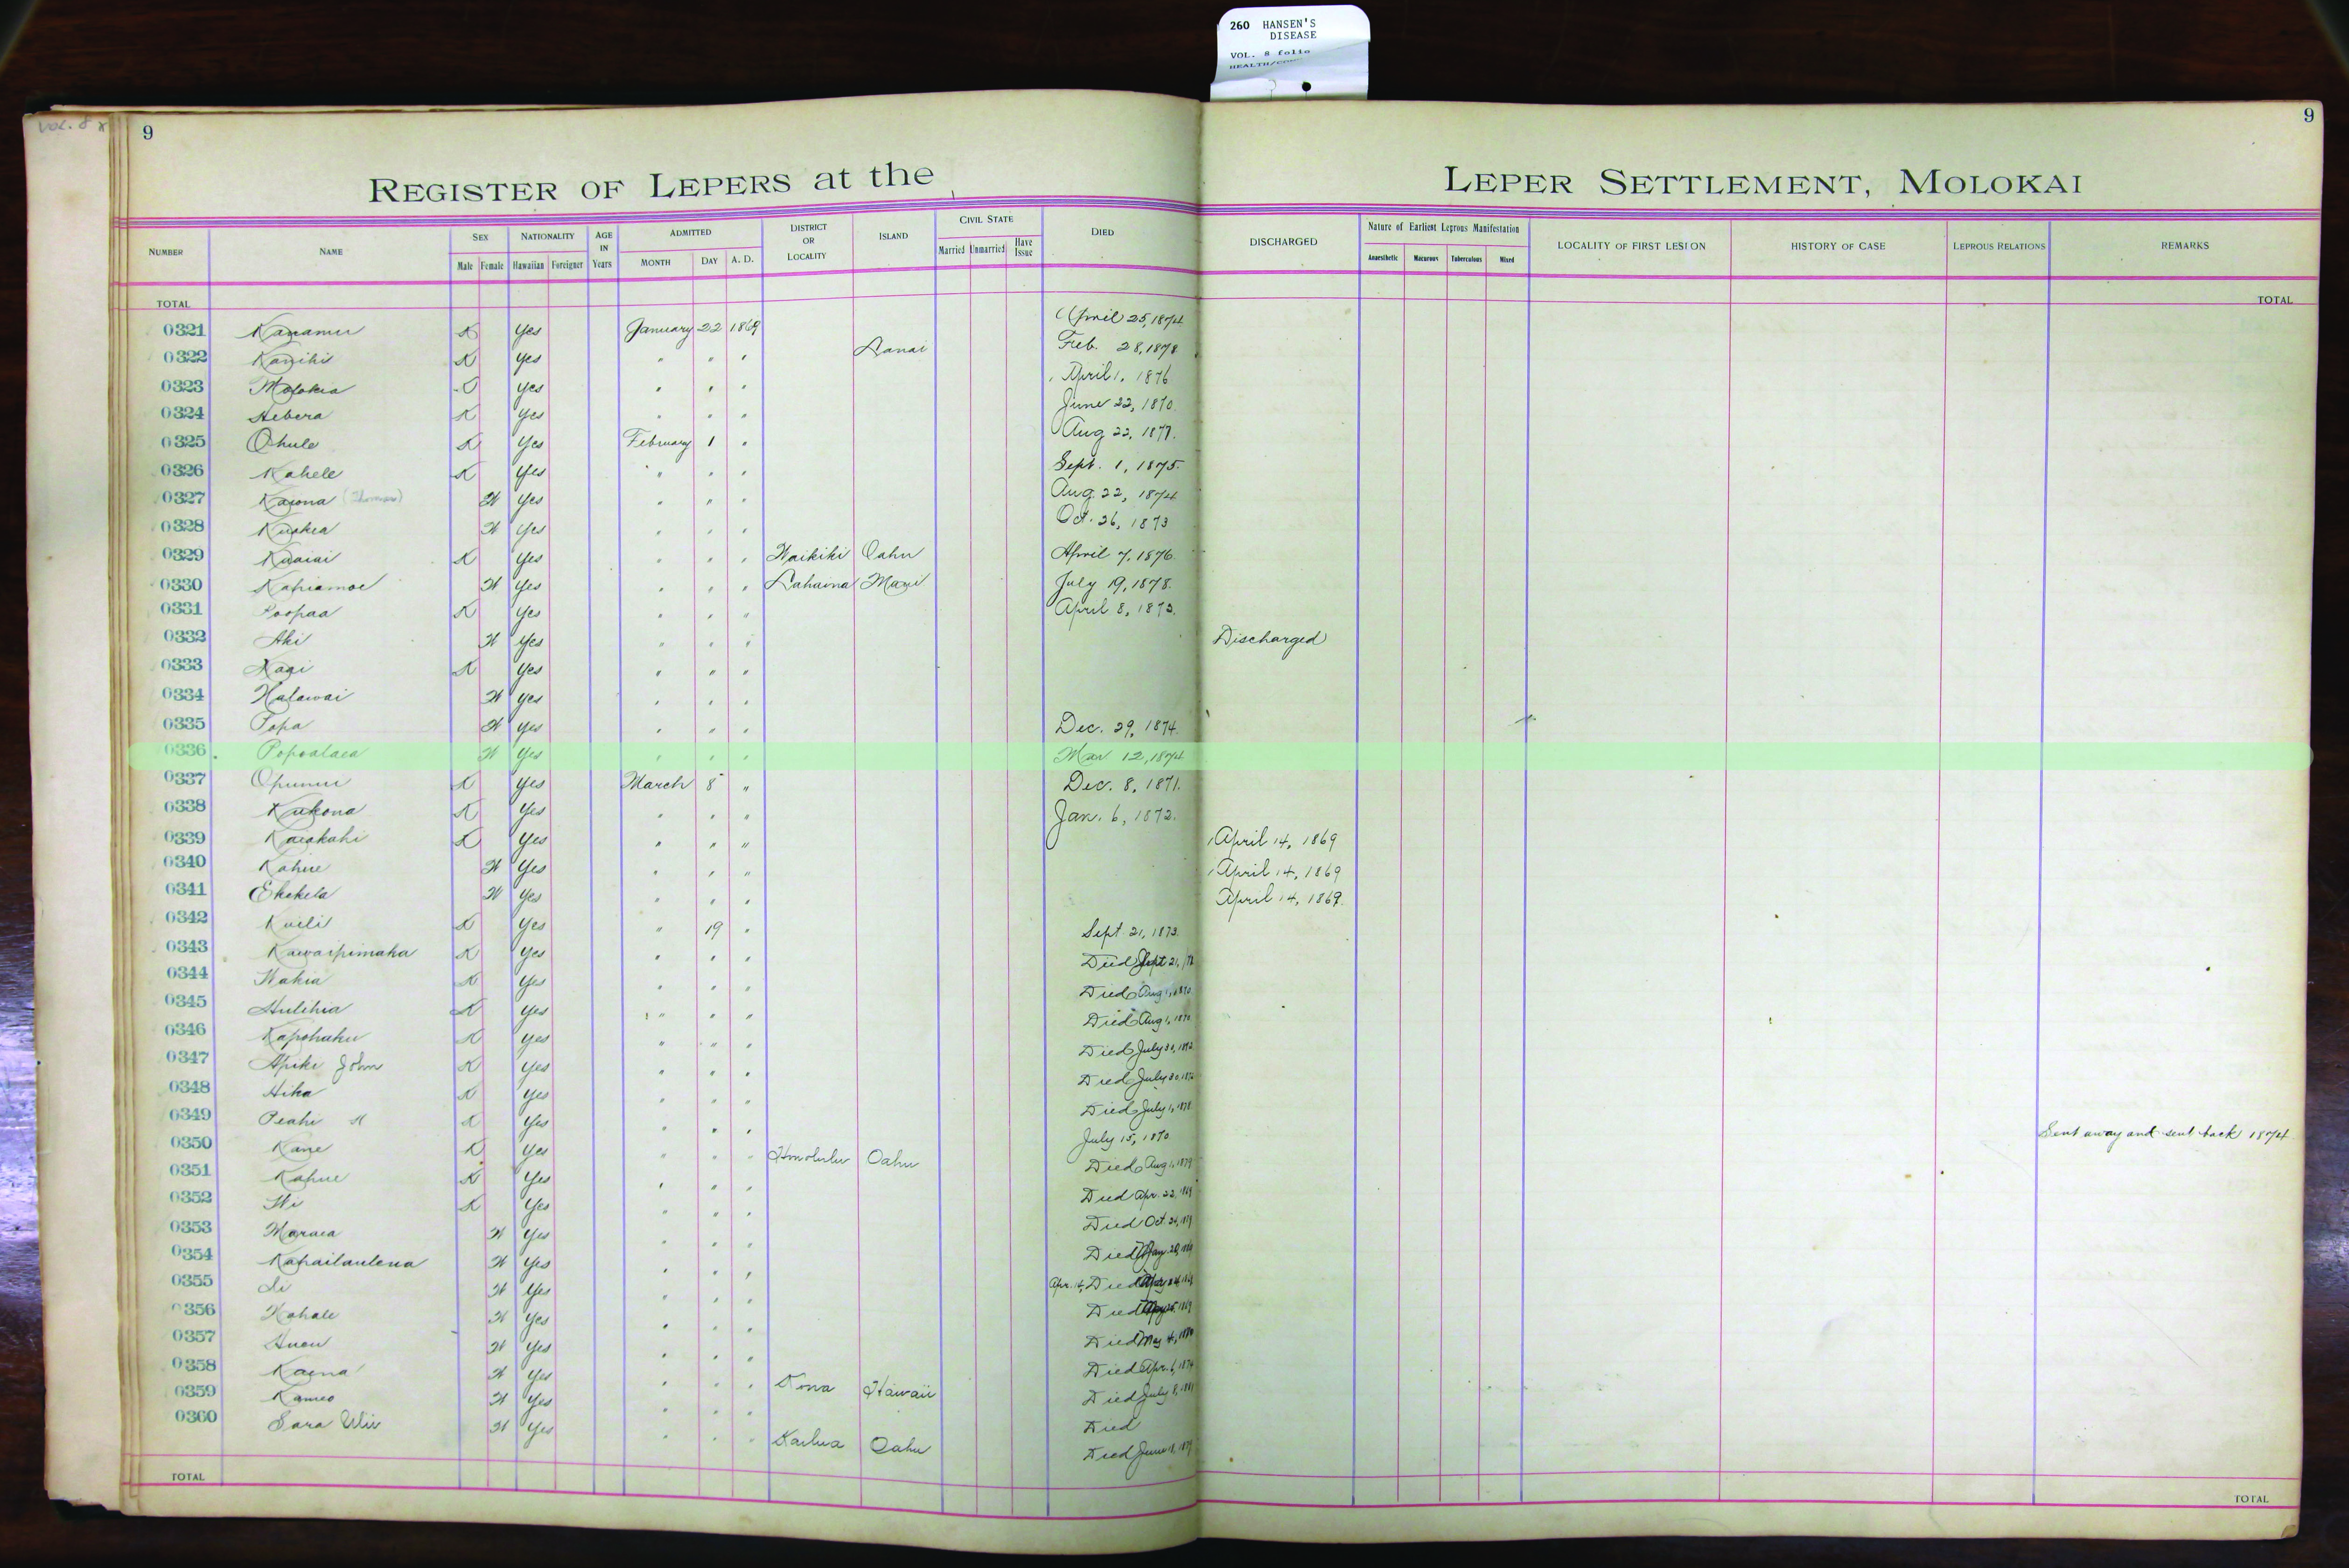 260 HANSEN'S
DISEASE
VOL. 8 folio
VOL. 8
9
9
REGISTER OF LEPERS at the LEPER SETTLEMENT, MOLOKAI
NUMBER NAME SEX NATIONALITY AGE IN Years ADMITTED DISTRICT OR LOCALITY ISLAND CIVIL STATE DIED DISCHARGED Nature of Earliest Leprous Manifestation LOCALITY OF FIRST LESION HISTORY OF CASE LEPROUS RELATIONS REMARKS
Male Female Hawaiian Foreigner MONTH DAY A. D. Married Unmarried Have Issue Anaesthetic Macurous Tuberculous Mixed
TOTAL TOTAL
0321 Kanamu K Yes January 22 1869 April 25, 1874
0322 Kanihi K Yes " " " Lanai Feb. 28, 1878
0323 Molokia Yes " " " April 1, 1876
0324 Hebera K Yes " " " June 22, 1870
0325 Ohule K Yes February 1 " Aug 22, 1877.
0326 Kahele K Yes " " " Sept. 1, 1875.
0327 Kaiona (Thomas) W Yes " " " Aug. 22, 1874
0328 Kuakea W Yes " " " Oct. 26, 1873
0329 Kuaiai K Yes " " " Waikiki Oahu April 7, 1876.
0330 Kahiamoe W Yes " " " Lahaina Maui July 19, 1878.
0331 Poopaa K Yes " " " April 8, 1873.
0332 Aki W Yes " " " Discharged
0333 K Yes " " "
0334 Halawai W Yes " " "
0335 Popa W Yes " " " Dec. 29, 1874.
0336 Popoalaea W Yes " " " Mar 12, 1874
0337 Opunui K Yes March 8 " Dec. 8, 1871.
0338 Kukona K Yes " " " Jan. 6, 1872.
0339 Kaiakahi K Yes " " " April 14, 1869
0340 Kahue W Yes " " " April 14, 1869
0341 Ekekela W Yes " " " April 14, 1869.
0342 Kuili K Yes " 19 " Sept. 21, 1873.
0343 Kawaipimaka K Yes " " " Died Sept 21,
0344 Wakia K Yes " " " Died Aug 1, 1870
0345 Hulihia K Yes " " " Died Aug 1, 1870
0346 Kapohaku K Yes " " " Died July 30, 1872
0347 Apiki John K Yes " " " Died July 30, 1872
0348 Hika K Yes " " " Died July 1, 1878
0349 Peahi K Yes " " " July 15, 1870. Sent away and sent back 1874.
0350 Kane K Yes " " " Honolulu Oahu Died Aug 1, 1879
0351 Kahue K Yes " " " Died Apr. 22, 1869
0352 Wi K Yes " " " Died Oct. 24, 1869
0353 Maraea W Yes " " " Died
0354 Kahailaulena W Yes " " " Apr. 14, Died
0355 W Yes " " " Died
0356 Kahale W Yes " " " Died May 4, 1880
0357 W Yes " " " Died Apr. 6, 1874
0358 Kaena W Yes " " " Kona Hawaii Died July 8, 1881
0359 Kameo W Yes " " " Died
0360 Sara W Yes " " " Kailua Oahu Died June 18, 1879
TOTAL TOTAL